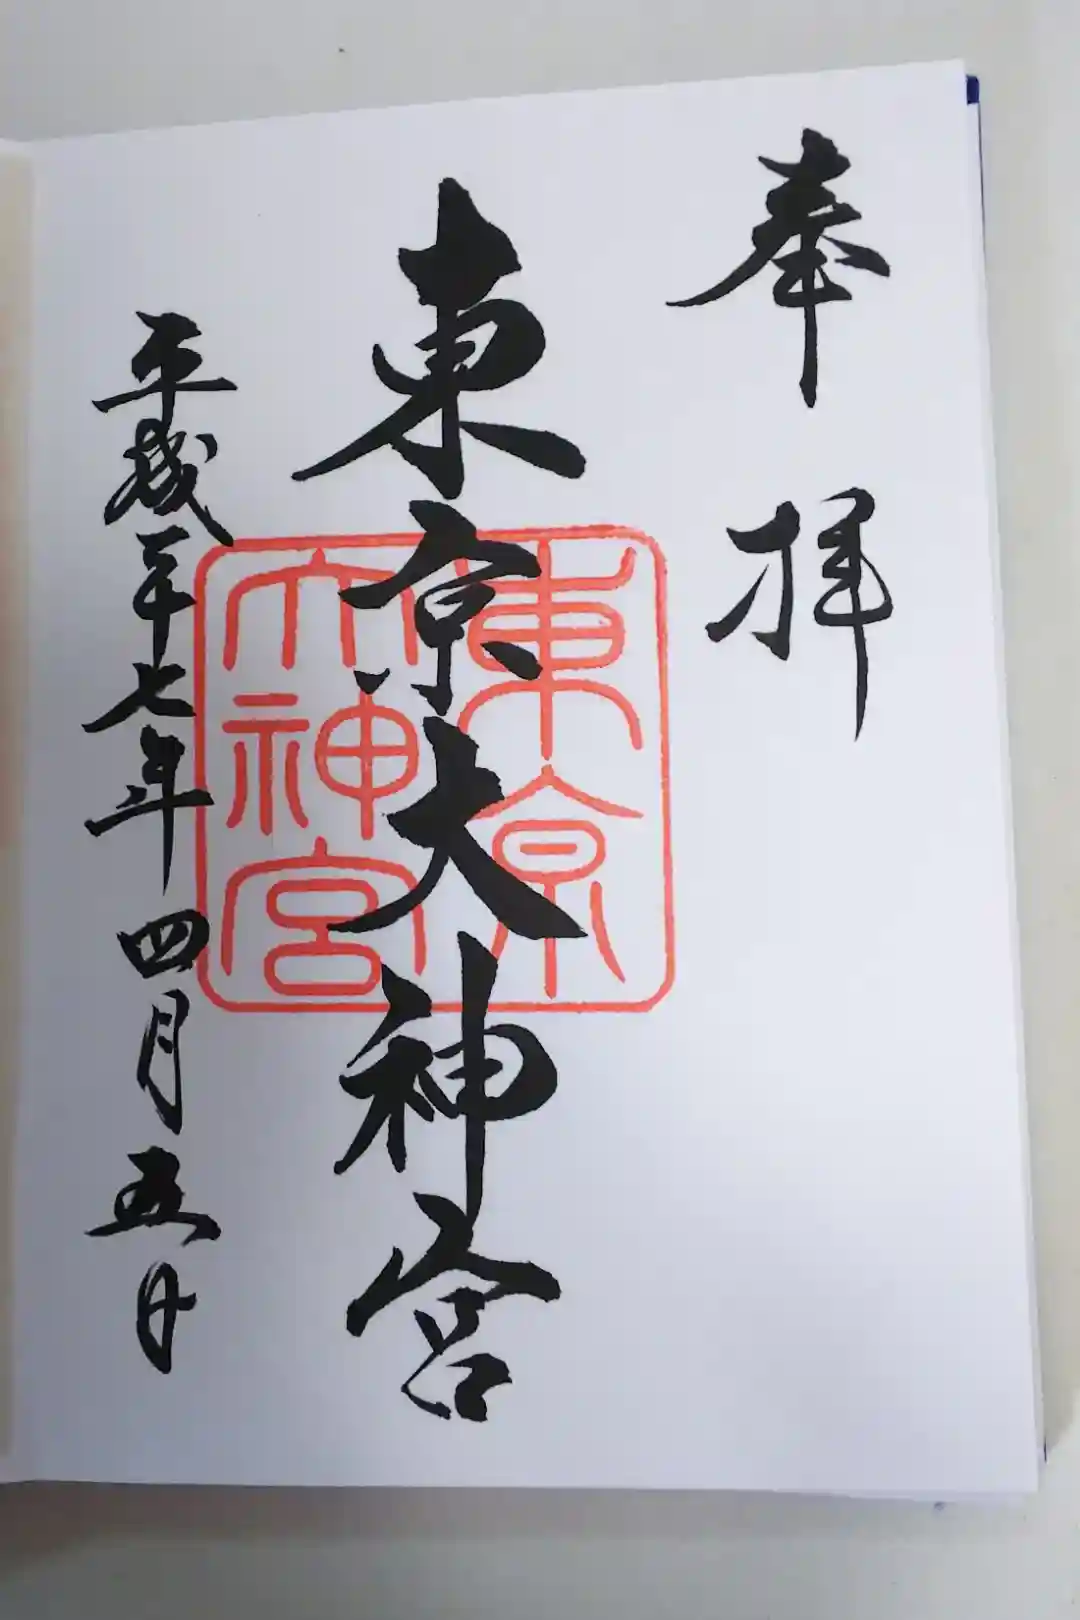 奉拝
東京大神宮
東京
大神宮
平成二十七年四月五日